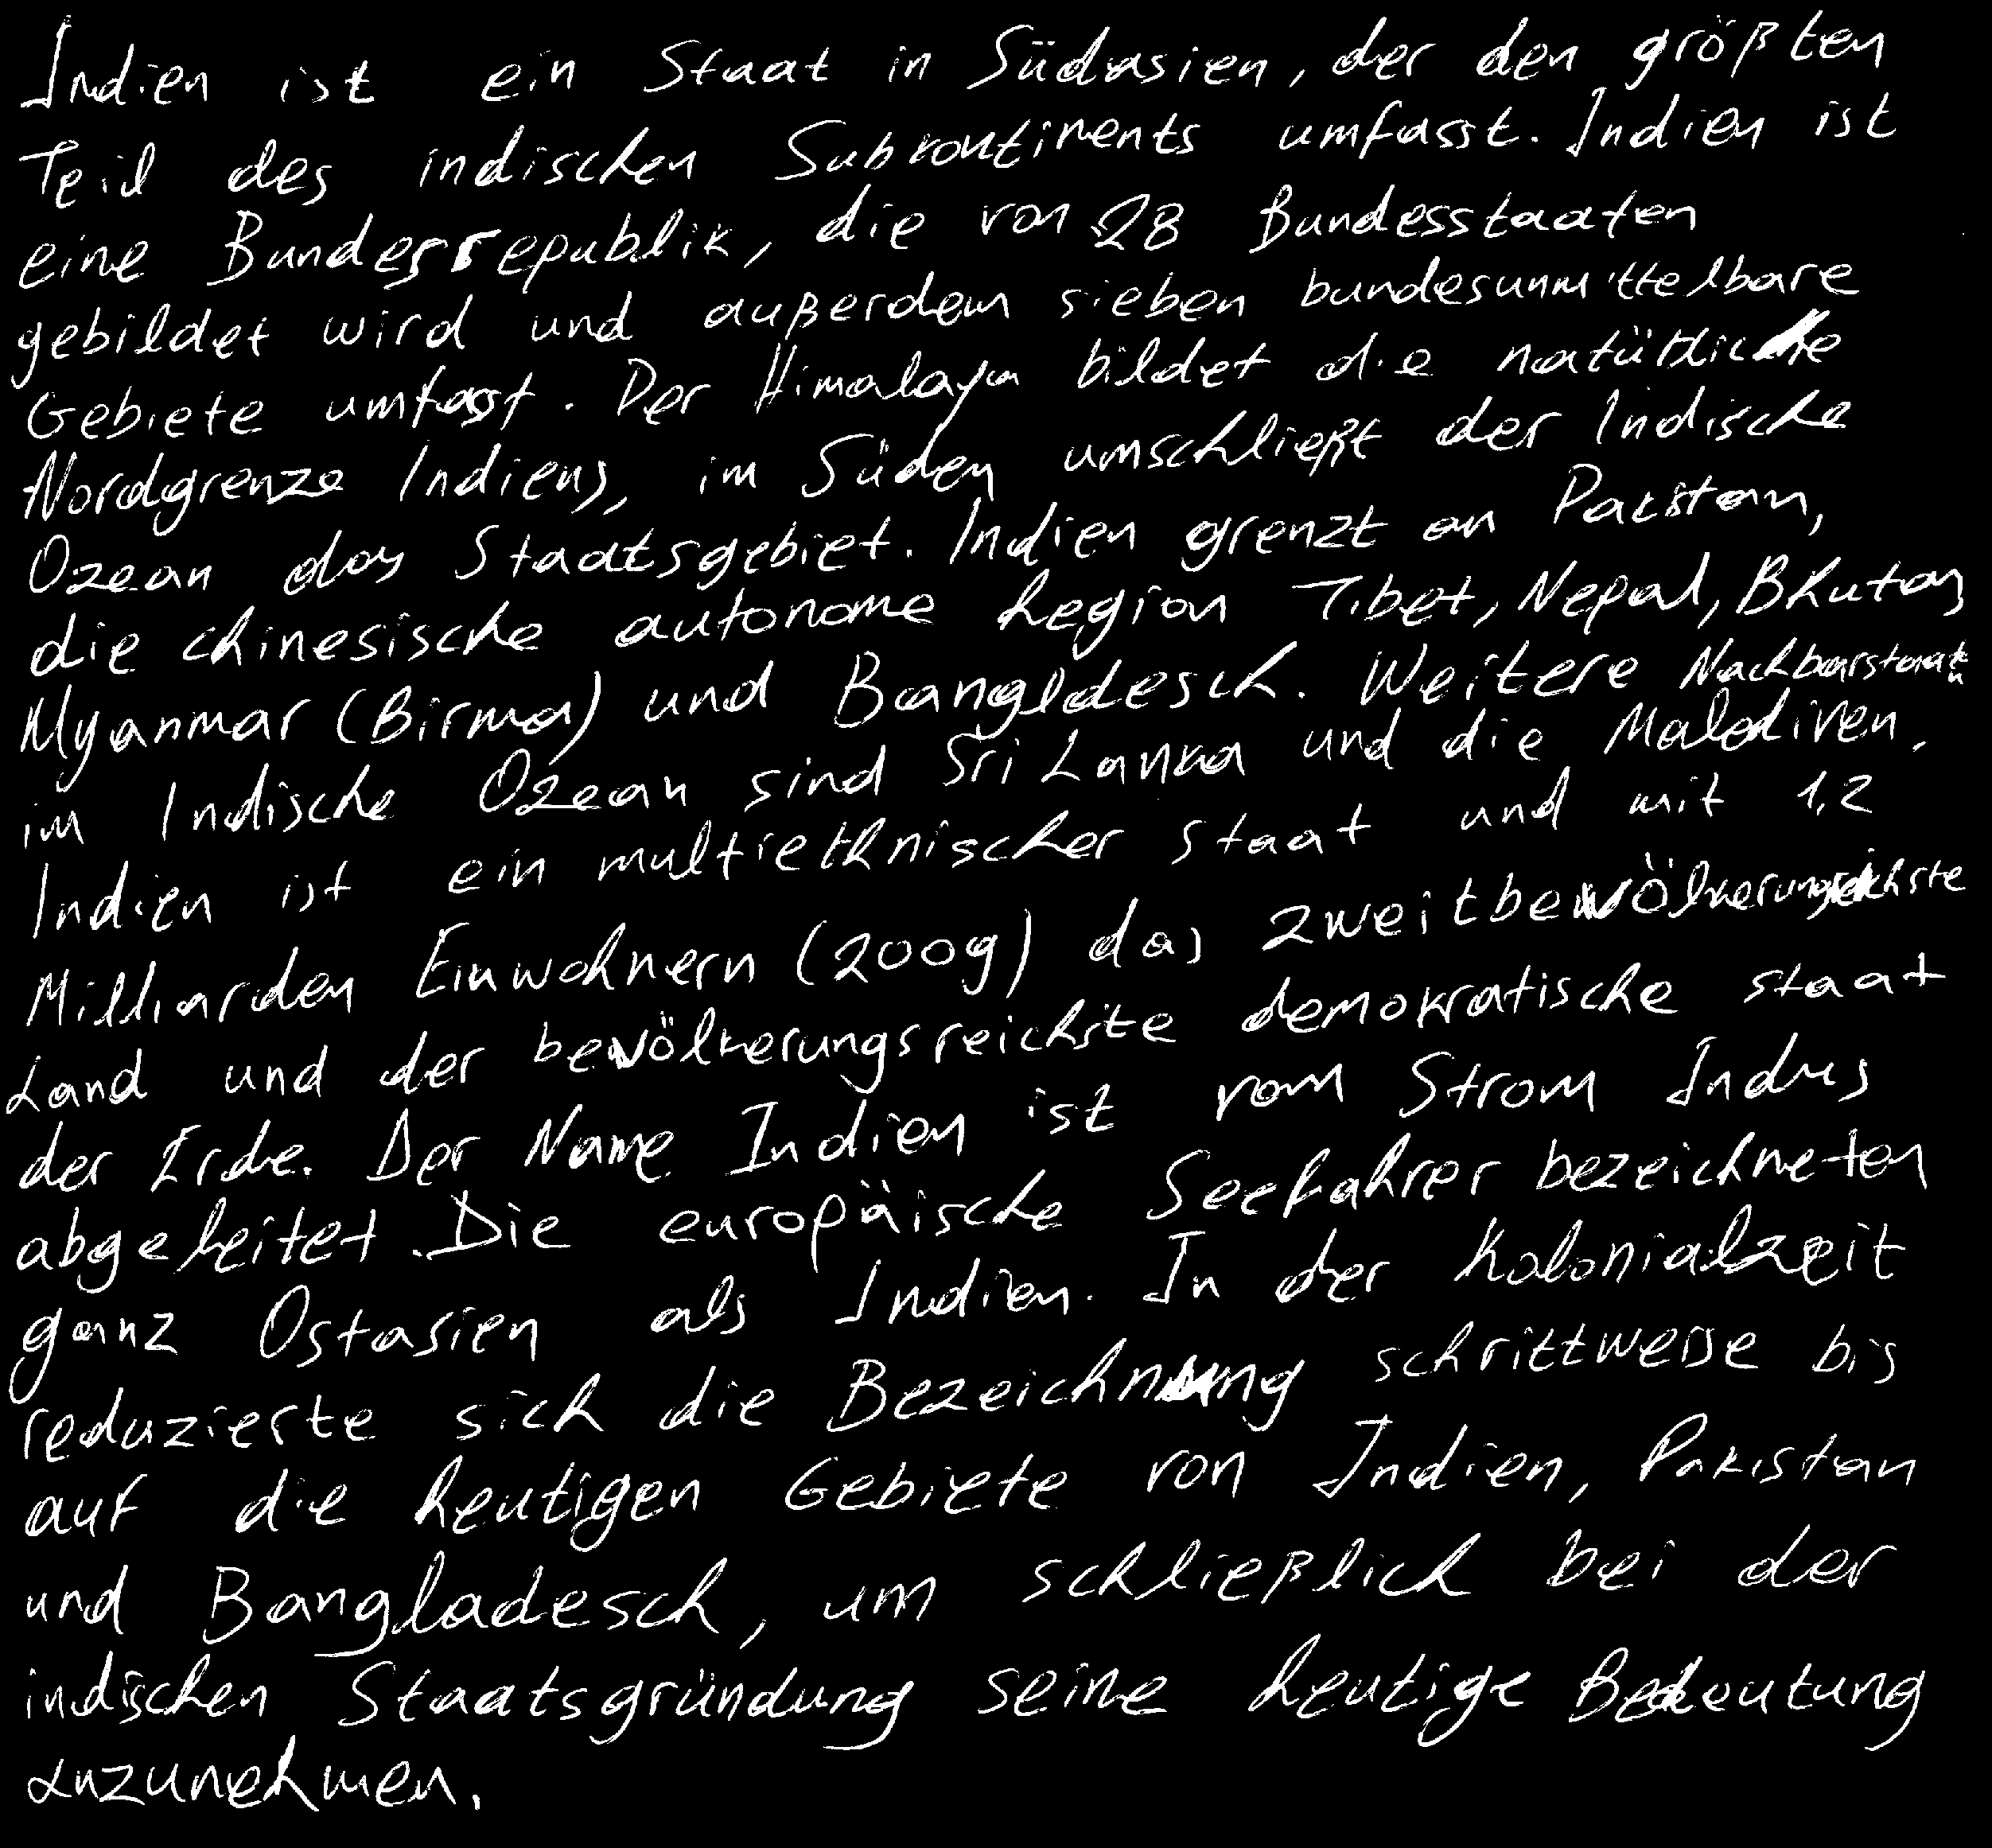 Indien ist ein Staat in Südasien, der den größten
Teil des indischen Subkontinents umfasst. Indien ist
eine Bundesrepublik, die von 28 Bundesstaaten
gebildet wird und außerdem sieben bundesunmittelbare
Gebiete umfasst. Der Himalaya bildet die natürliche
Nordgrenze Indiens, im Süden umschließt der Indische
Ozean das Staatsgebiet. Indien grenzt an Pakistan,
die chinesische autonome Region Tibet, Nepal, Bhutan,
Myanmar (Birma) und Bangldesch. Weitere Nachbarstaaten
im Indische Ozean sind Sri Lanka und die Malediven.
Indien ist ein multiethnischer Staat und mit 1,2
Milliarden Einwohnern (2009) das zweitbevölkerungsreichste
Land und der bevölkerungsreichste demokratische Staat
der Erde. Der Name Indien ist vom Strom Indus
abgeleitet. Die europäische Seefahrer bezeichneten
ganz Ostasien als Indien. In der Kolonialzeit
reduzierte sich die Bezeichnung schrittweise bis
auf die heutigen Gebiete von Indien, Pakistan
und Bangladesch, um schließlich bei der
indischen Staatsgründung seine heutige Bedeutung
anzunehmen.